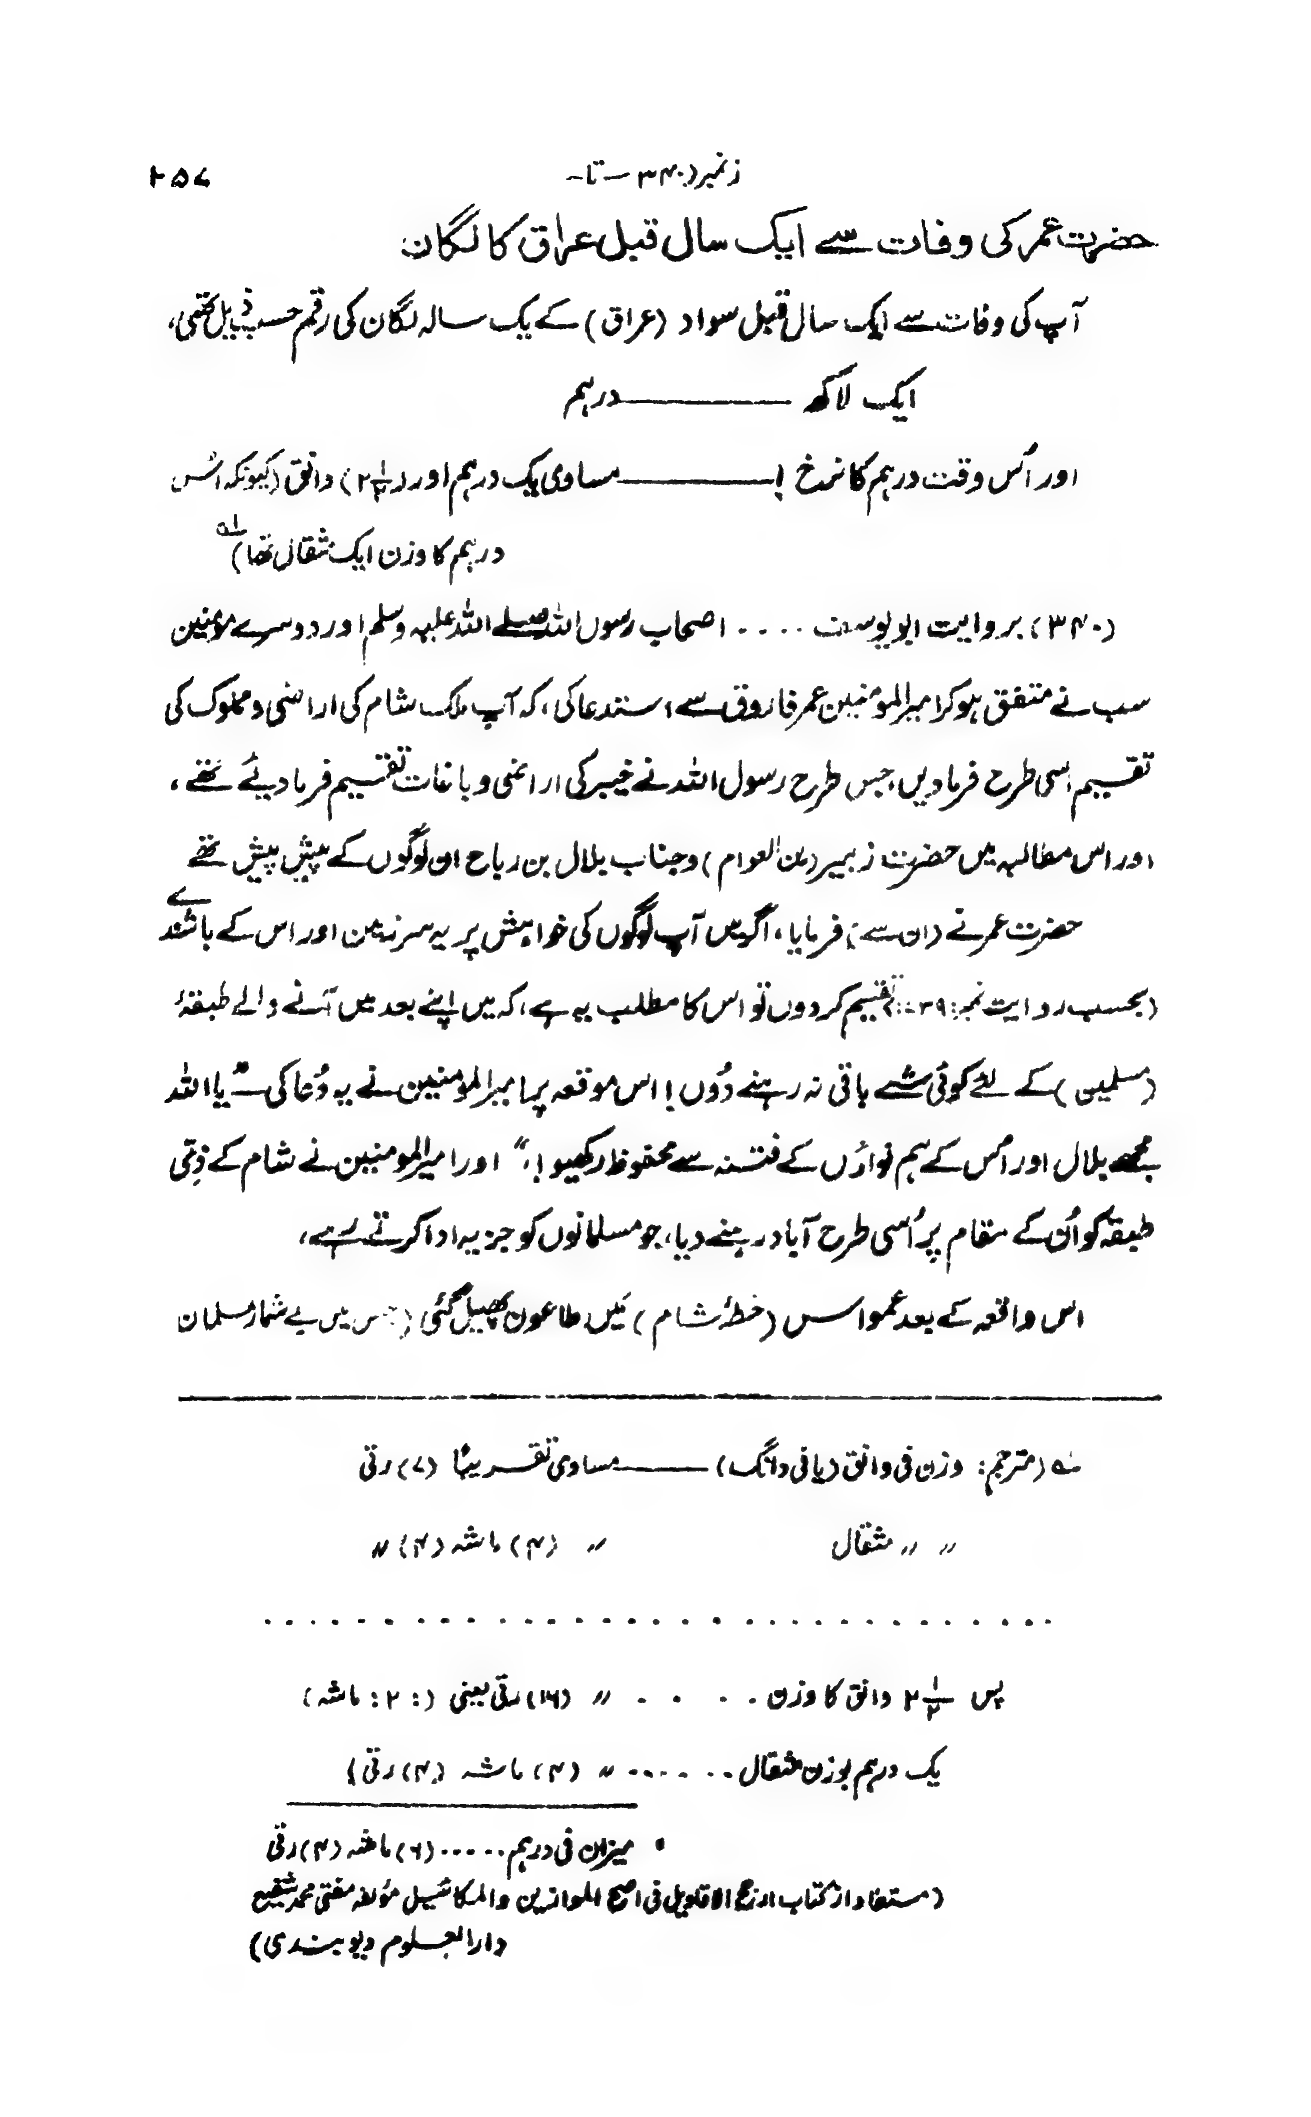 زنمبر (۳۴۰ — تا — ۲۵۷
حضرت عمر کی وفات سے ایک سال قبل عراق کا لگان
آپ کی وفات سے ایک سال قبل سواد (عراق) کے یک سالہ لگان کی رقم حسب ذیل تھی،
ایک لاکھ ——— درہم
اور اُس وقت درہم کا نرخ! ——— مساوی یک درہم اور (۲½) دانق (کیونکہ اس
درہم کا وزن ایک مثقال تھا) لہ
(۳۴۰) بروایت ابو یوسف .... اصحاب رسول اللہ صلے اللہ علیہ وسلم اور دوسرے مومنین
سب نے متفق ہو کر امیر المومنین عمر فاروق سے استدعا کی، کہ آپ ملک شام کی اراضی و مملوک کی
تقسیم اسی طرح فرما دیں، جس طرح رسول اللہ نے خیبر کی اراضی و باغات تقسیم فرما دیئے تھے،
اور اس مطالبہ میں حضرت زبیر (بن العوام) و جناب بلال بن رباح ان لوگوں کے پیش پیش تھے
حضرت عمر نے (ان سے) فرمایا، اگر میں آپ لوگوں کی خواہش پر یہ سرزمین اور اس کے باشندے
(بحسب روایت نمبر: ۳۹) تقسیم کر دوں تو اس کا مطلب یہ ہے، کہ میں اپنے بعد میں آنے والے طبقۂ
(مسلمین) کے لئے کوئی شے باقی نہ رہنے دُوں! اس موقعہ پر امیر المومنین نے یہ دُعا کی "یا اللہ
مجھے بلال اور اُس کے ہم نواؤں کے فتنہ سے محفوظ رکھیو!،" اور امیر المومنین نے شام کے ذِمّی
طبقہ کو اُن کے مقام پر اُسی طرح آباد رہنے دیا، جو مسلمانوں کو جزیہ ادا کرتے رہے،
اس واقعہ کے بعد عمواس (خطۂ شام) میں طاعون پھیل گئی (جس میں بے شمار مسلمان
لہ (مترجم: وزن فی دانق (یا فی دانگ) ——— مساوی تقریباً (۷) رتی
〃 〃 مثقال 〃 (۴) ماشہ (۴) 〃
. . . . . . . . . . . . . . . . . . . . . . . . . . . . .
پس ۲½ دانق کا وزن . . . . 〃 (۱۶) رتی یعنی (: ۲: ماشہ)
یک درہم بوزن مثقال ...... 〃 (۴) ماشہ (۴) رتی)
• میزان فی درہم ..... (۶) ماشہ (۴) رتی
(مستفاد از کتاب ارجح الاقاویل فی اصح الموازین والمکائیل مؤلفہ مفتی محمد شفیع
دار العلوم دیوبندی)